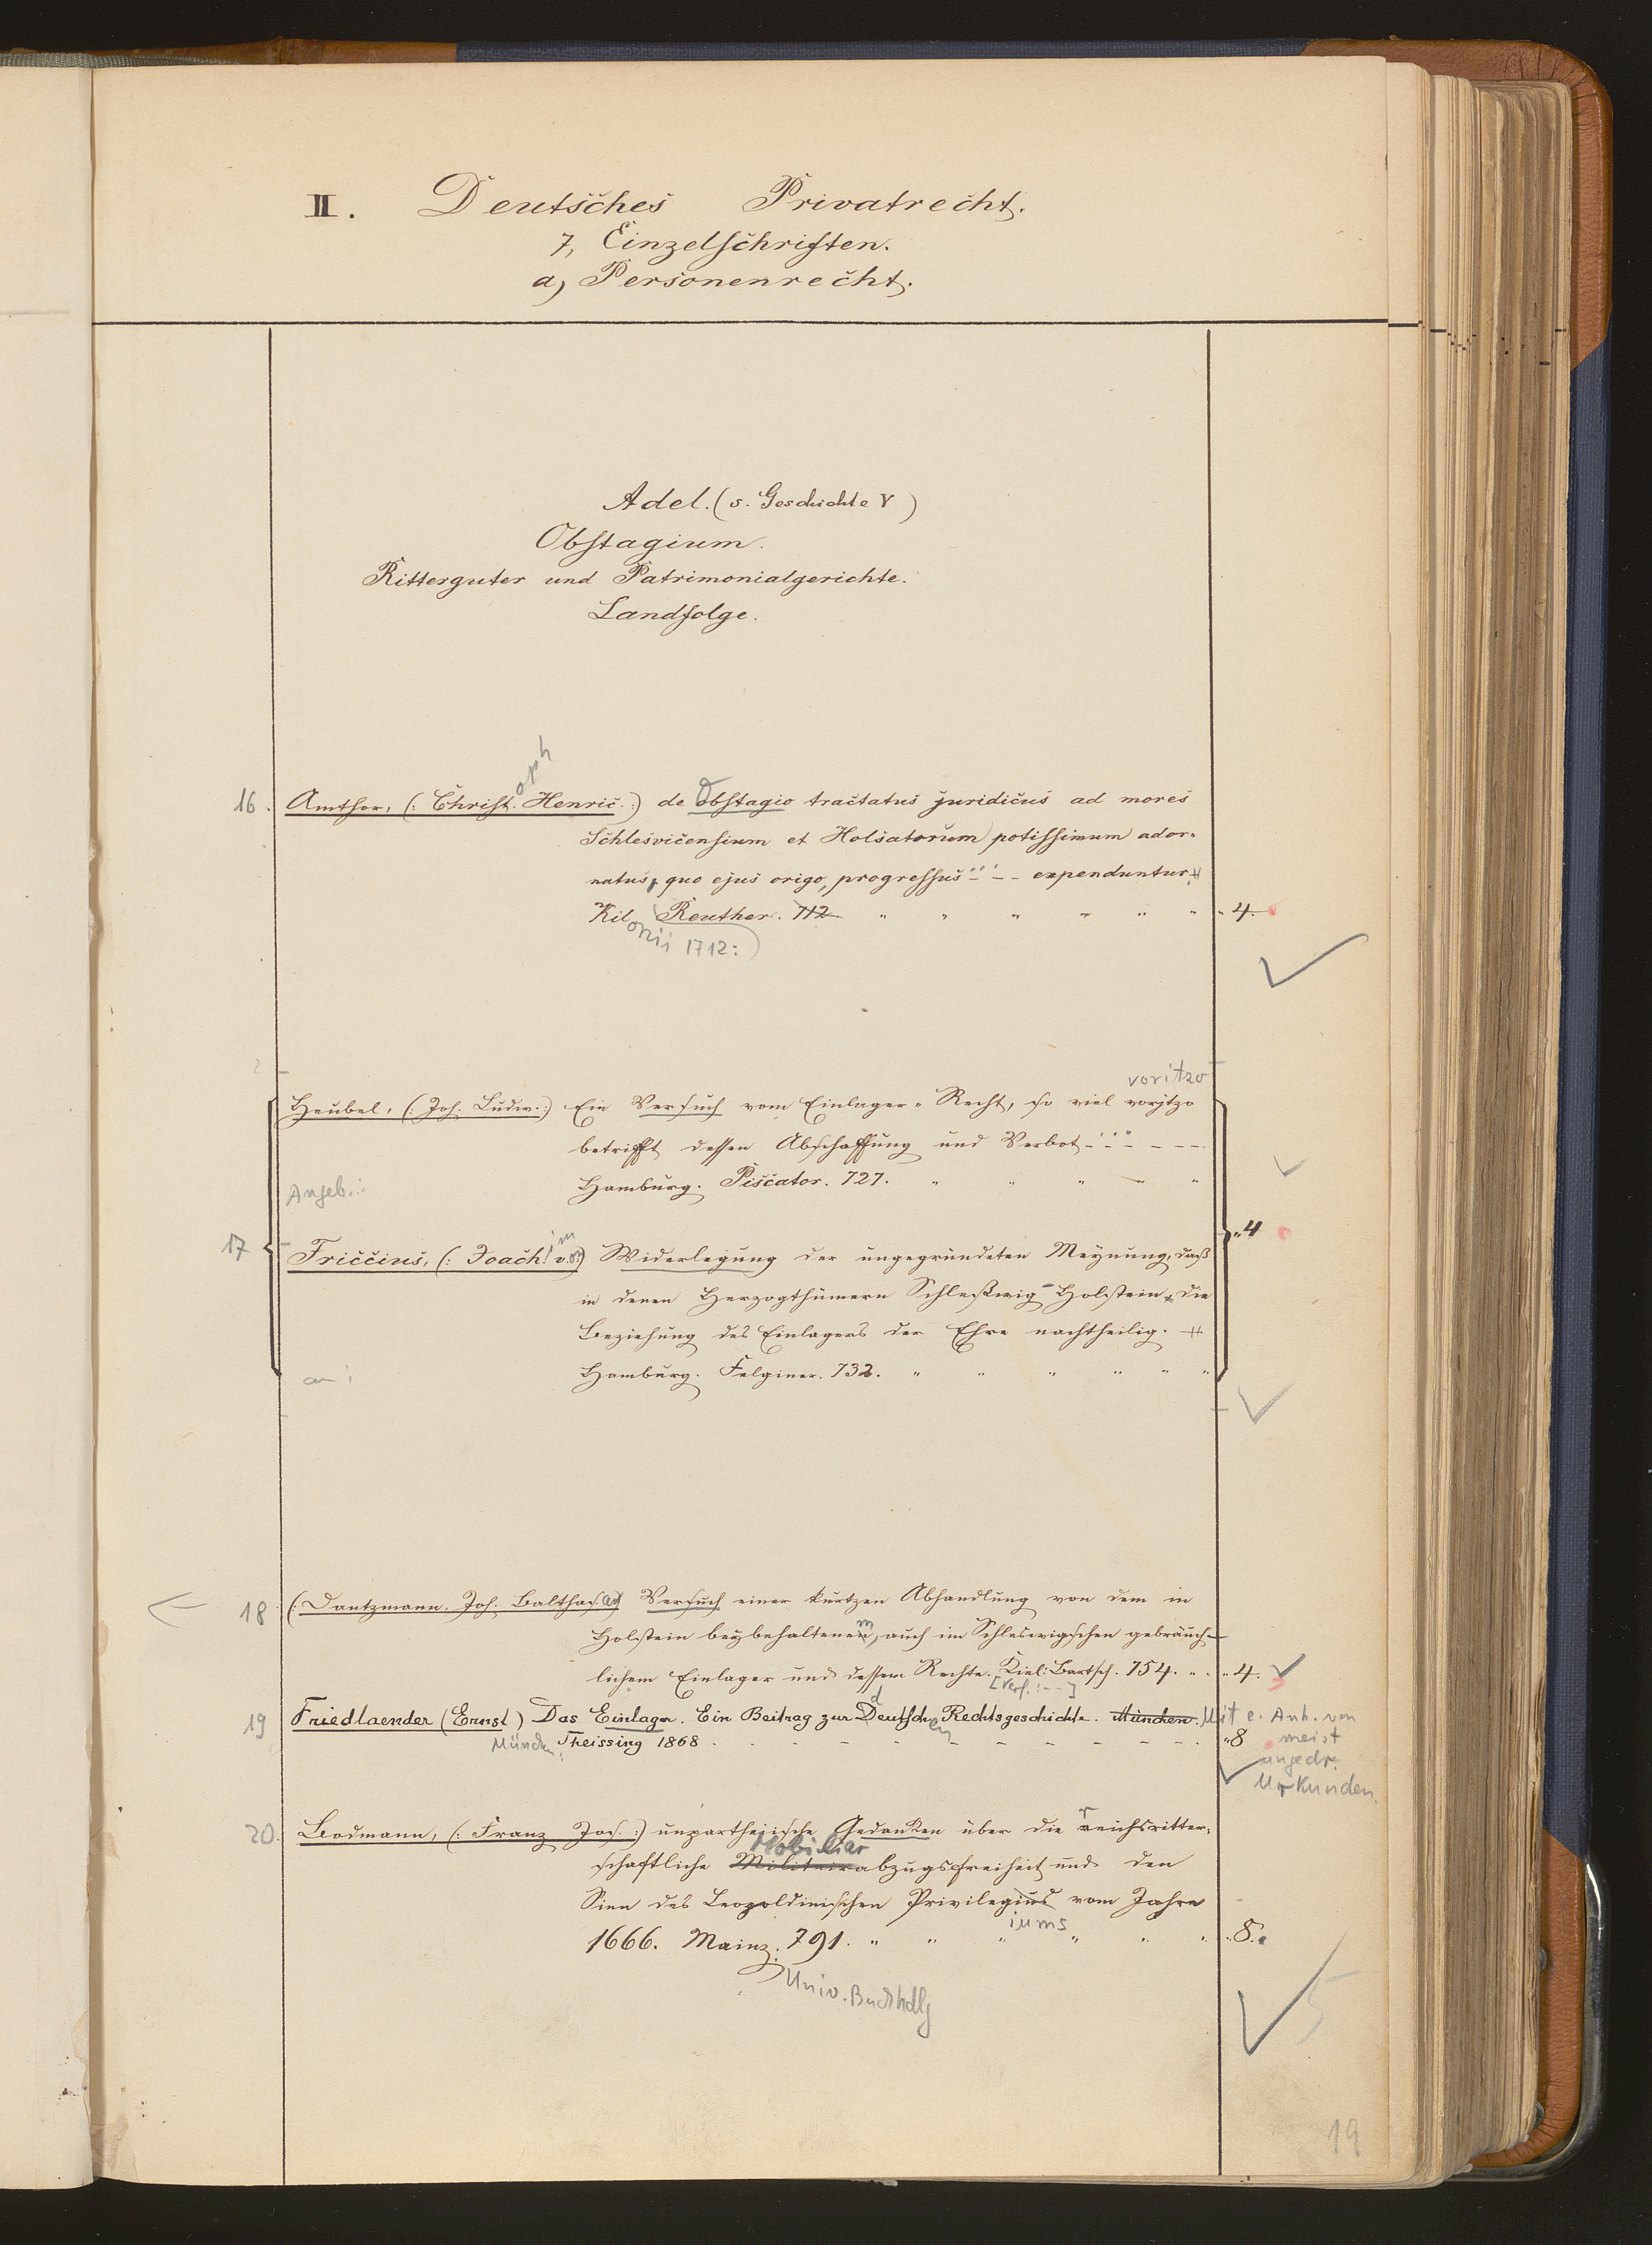 II. Deutsches Privatrecht.
7, Einzelschriften.
a, Personenrecht.
Adel. (s. Geschichte V)
Obstagium.
Ritterguter und Patrimonialgerichte.
Landfolge.
oph
16. Amthor, (: Christ. Henric. :) de Obstagio tractatus juridicus ad mores
Schlesvicensium et Holsatorum potissimum ador-
natus, quo ejus origo, progressus - - - expenduntur.
Kil Reuther. 712 " " " " " " "4.
onii 1712:
voritzo
Heubel, (: Joh. Ludw. :) Ein Versuch vom Einlager-Recht, so viel vorjtzo
betrifft dessen Abschaffung und Verbot - - - - -
Angeb.:
Hamburg. Piscator. 727. " " " "
im
17 Friccius, (: Joach! v. :) Widerlegung der ungegründeten Meynung, daß "4
in denen Herzogthümern Schleßwig-Holstein, die
Beziehung des Einlagers der Ehre nachtheilig.
Hamburg. Felginer. 732. " " " " " "
18 (: Dantzmann, Joh. Balthas. :) Versuch einer kurtzen Abhandlung von dem in
Holstein beybehaltenen, auch im Schleswigschen gebräuch-
m
lichem Einlager und dessen Rechte. Kiel: Bartsch. 754. " "4.
[Verf.: --]
19 Friedlaender (Ernst) Das Einlager. Ein Beitrag zur Deutschen Rechtsgeschichte. München. Mit e. Anh. von
d
München: Theissing 1868 . . - - - - - - - "8 meist
ungedr.
Urkunden.
20. Bodmann, (: Franz Jos. :) unpartheiische Gedanken über die reichsritter-
r
Mobiliar
schaftliche Militairabzugsfreiheit und den
Sinn des Leopoldinischen Privilegiums vom Jahre
iums
1666. Mainz. 791. " " " " " " "8.
Univ. Buchhdlg
5
19